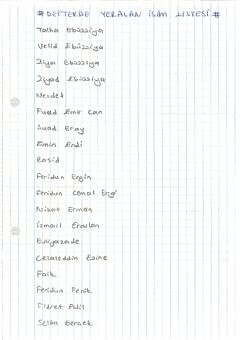 # DEFTERDE YERALAN İSİM LİSTESİ #
Talha Ebüzziya
Velid Ebüzziya
Ziya Ebüzziya
Ziyad Ebüzziya
Necdet
Fuad Emir Can
Suad Eray
Emin Erdi
Rasid
Feridun Ergin
Feridun Cemal Ergi
Nihat Erman
İsmail Eraslan
Evliyazade
Celaleddin Ezine
Faik
Feridun Fenik
Fikret Adil
Selim Gerçek